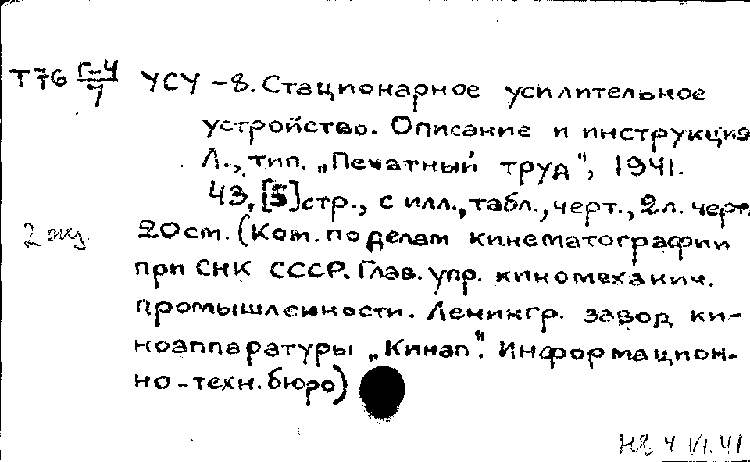 Т76 Г-4/7 УСУ-8. Стационарное усилительное
устройство. Описание и инструкция
Л., тип. „Печатный труд", 1941.
43, [5] стр., с илл., табл., черт., 2 л. черт.
2 экз. 20 см. (Ком. по делам кинематографии
при СНК СССР. Глав. упр. киномеханич.
промышленности. Ленингр. завод ки-
ноаппаратуры „Кинап". Информацион-
но-техн. бюро)
4 VI.41